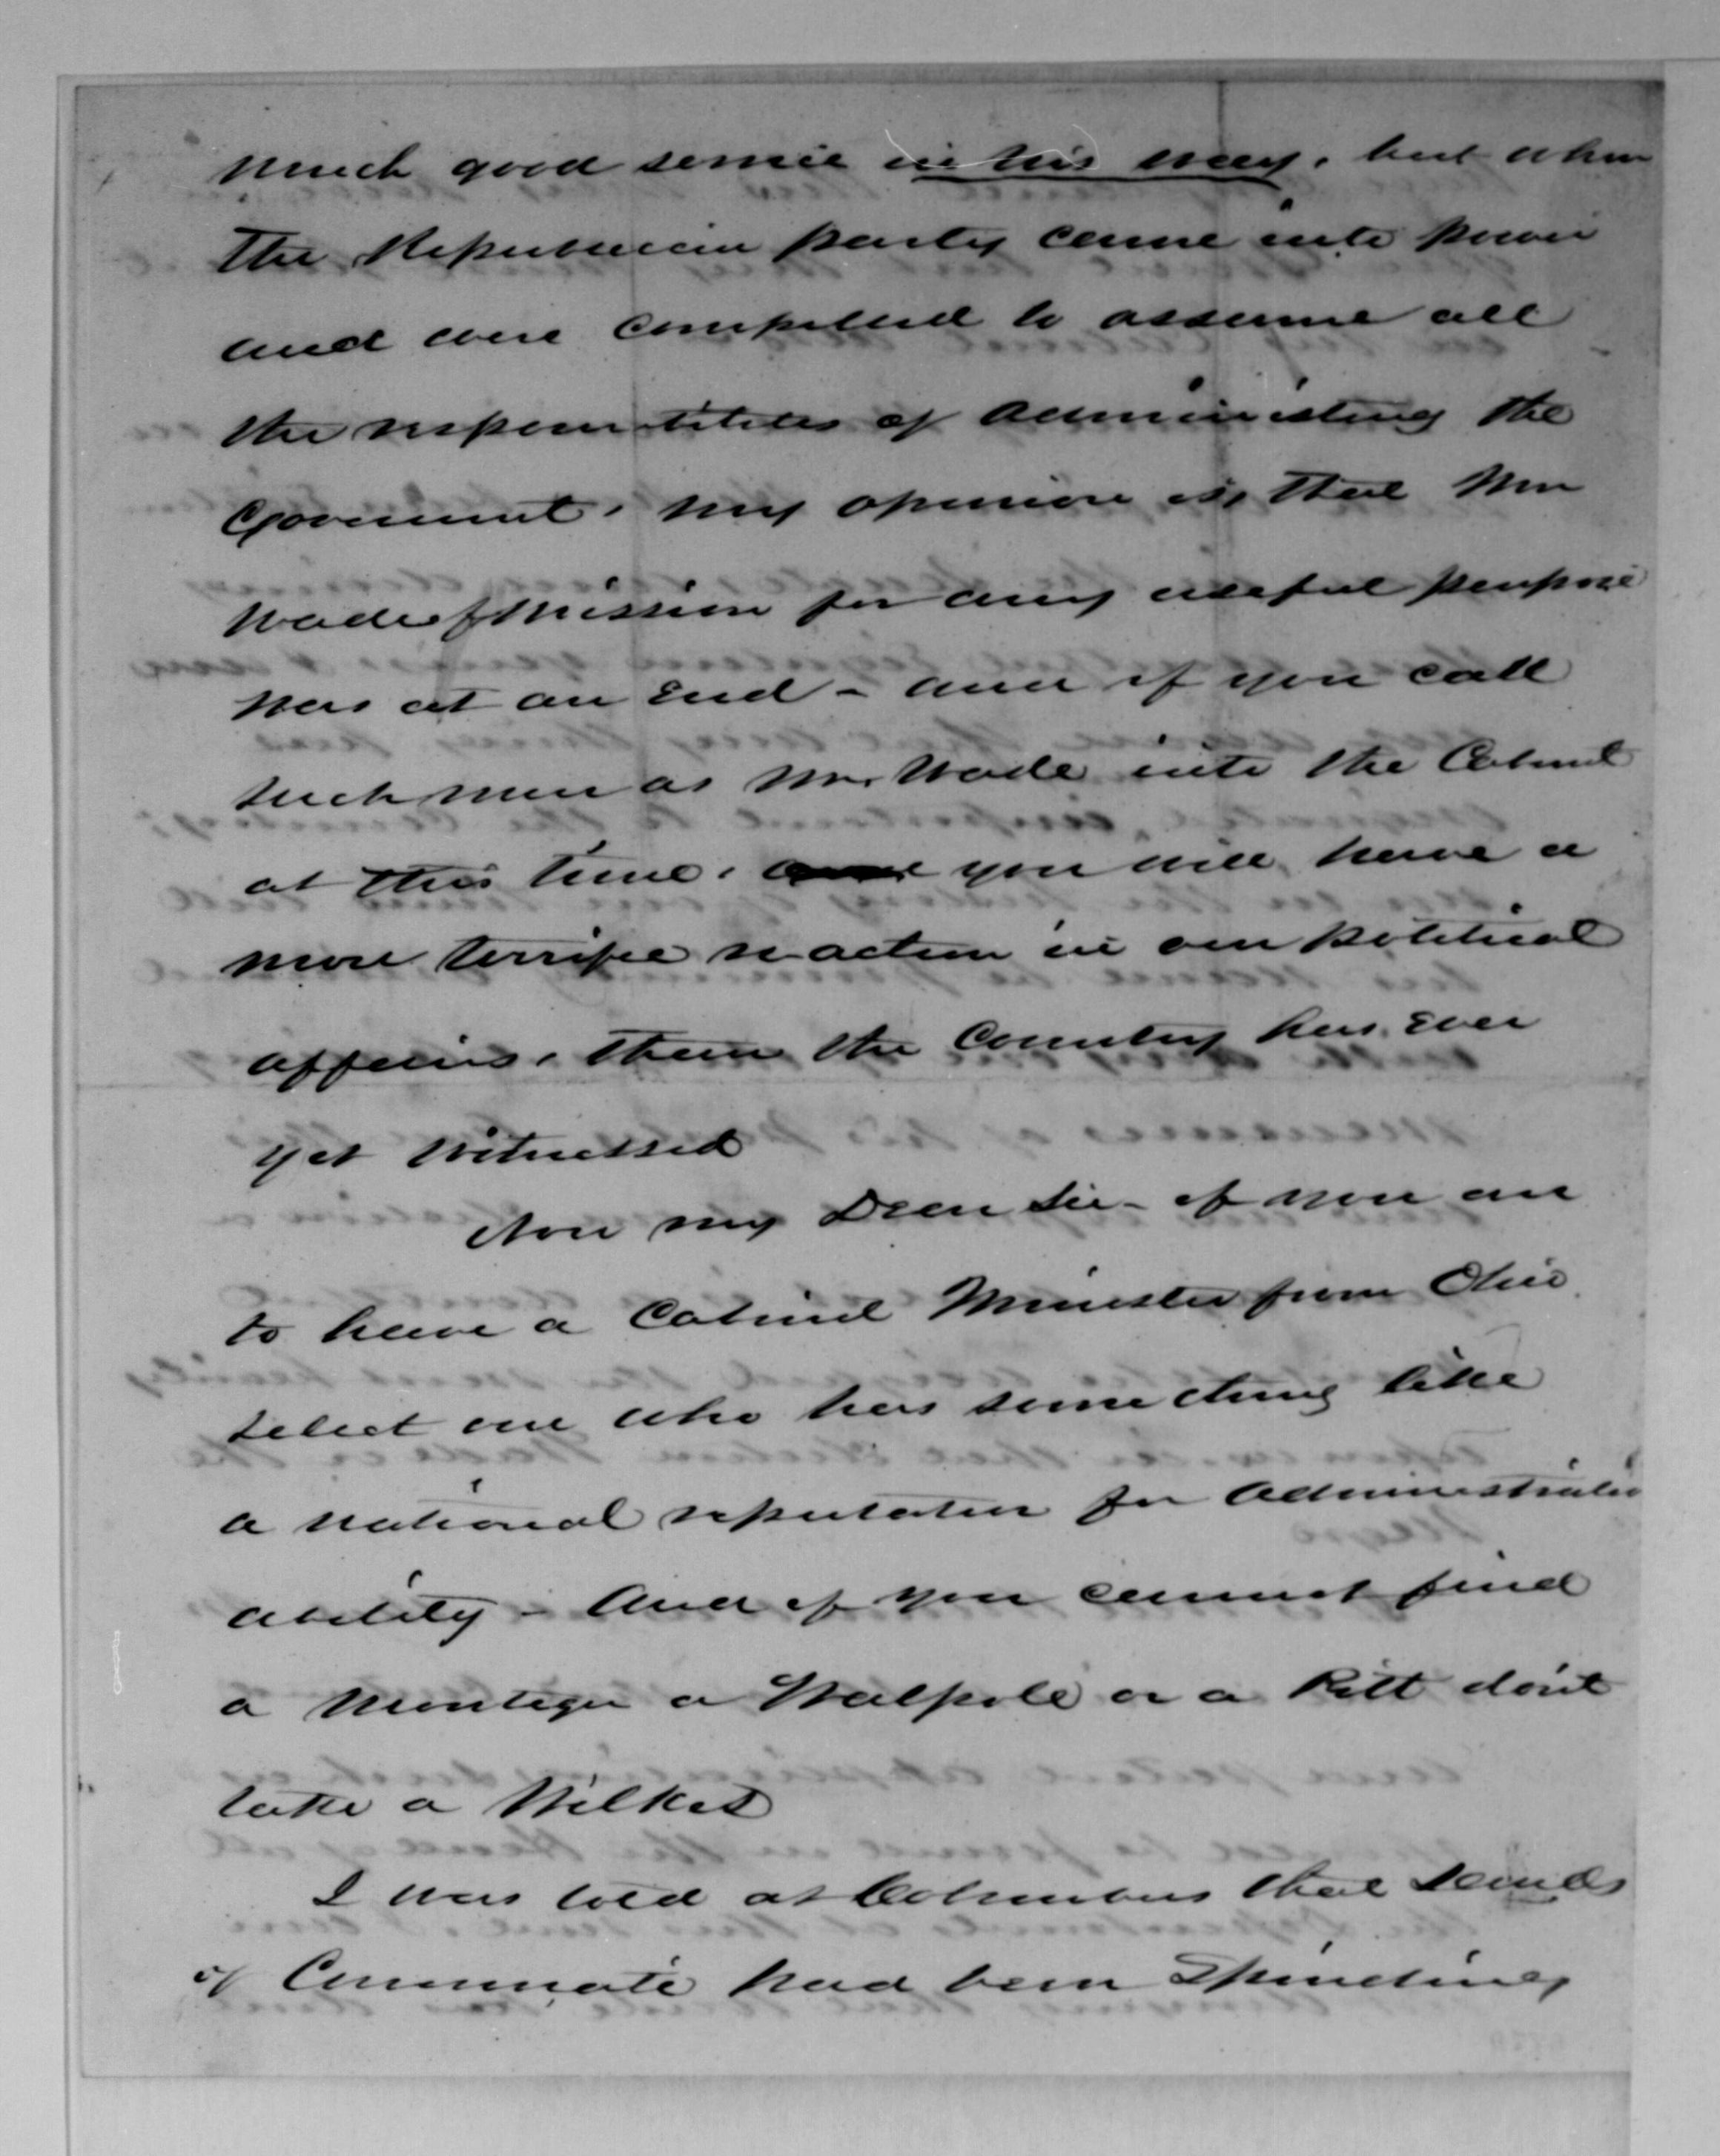 much good service in his way, but when
the Republican party came into power
and were compelled to assume all
the responsibilites of administing the
Government, my opinion is, that Mr
Wades mission for any useful purpose
was at an End - and if you call
such men as Mr. Wade into the Cabinet
at this time, you will have a
more terrific reaction in our political
affairs, than the Country has Ever
yet witnessed
Now my Dear Sir - if you are
to have a Cabinet Minister from Ohio
select one who has some thing like
a national reputation for administrative
ability - And if you cannot find
a Montague a Walpole or a Pitt dont
take a Wilkes
I was told at Columbus that
of Cincinnati had been Spending